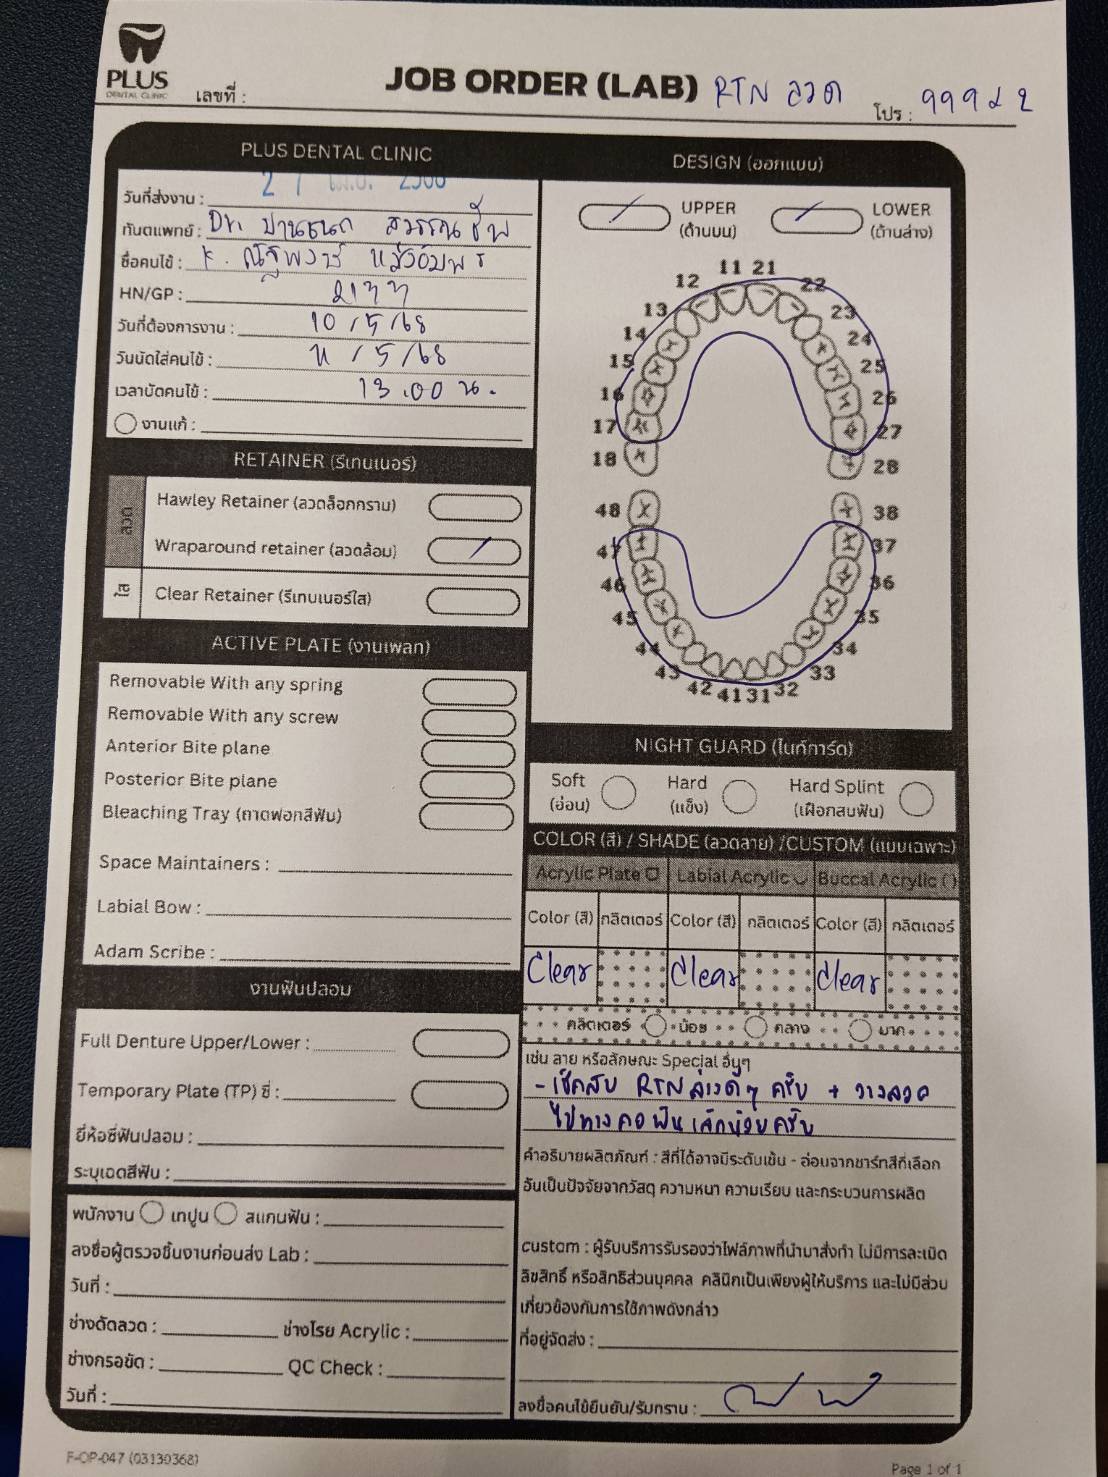 PLUS
DENTAL CLINIC
เลขที่ :
JOB ORDER (LAB) RTN ลวด
โปร : 999 x 2
PLUS DENTAL CLINIC
วันที่ส่งงาน : 27 เม.ย. 2568
ทันตแพทย์ : Dr. ปานชนก
ชื่อคนไข้ : K. ณัฐพงษ์
HN/GP : 2177
วันที่ต้องการงาน : 10 / 5 / 68
วันนัดใส่คนไข้ : 11 / 5 / 68
เวลานัดคนไข้ : 13.00 น.
งานแก้ :
RETAINER (รีเทนเนอร์)
ลวด
Hawley Retainer (ลวดล็อกกราม)
Wraparound retainer (ลวดล้อม)
ใส
Clear Retainer (รีเทนเนอร์ใส)
ACTIVE PLATE (งานเพลท)
Removable With any spring
Removable With any screw
Anterior Bite plane
Posterior Bite plane
Bleaching Tray (ถาดฟอกสีฟัน)
Space Maintainers :
Labial Bow :
Adam Scribe :
งานฟันปลอม
Full Denture Upper/Lower :
Temporary Plate (TP) ซี่ :
ยี่ห้อซี่ฟันปลอม :
ระบุเฉดสีฟัน :
พนักงาน เทปูน สแกนฟัน :
ลงชื่อผู้ตรวจชิ้นงานก่อนส่ง Lab :
วันที่ :
ช่างดัดลวด : ช่างโรย Acrylic :
ช่างกรอขัด : QC Check :
วันที่ :
DESIGN (ออกแบบ)
UPPER
(ด้านบน)
LOWER
(ด้านล่าง)
11 21
12 22
13 23
14 24
15 25
16 26
17 27
18 28
48 38
47 37
46 36
45 35
44 34
43 33
42 41 31 32
NIGHT GUARD (ไนท์การ์ด)
Soft
(อ่อน)
Hard
(แข็ง)
Hard Splint
(เฝือกสบฟัน)
COLOR (สี) / SHADE (ลวดลาย) /CUSTOM (แบบเฉพาะ)
Acrylic Plate Labial Acrylic Buccal Acrylic
Color (สี) กลิตเตอร์ Color (สี) กลิตเตอร์ Color (สี) กลิตเตอร์
Clear Clear Clear
กลิตเตอร์ น้อย กลาง มาก
เช่น ลาย หรือลักษณะ Special อื่นๆ
- เช็คสบ RTN ล่างดีๆ ครับ + วางลวด
ไปทางคอฟันเล็กน้อยครับ
คำอธิบายผลิตภัณฑ์ : สีที่ได้อาจมีระดับเข้ม - อ่อนจากชาร์ทสีที่เลือก
อันเป็นปัจจัยจากวัสดุ ความหนา ความเรียบ และกระบวนการผลิต
custom : ผู้รับบริการรับรองว่าไฟล์ภาพที่นำมาสั่งทำ ไม่มีการละเมิด
ลิขสิทธิ์ หรือสิทธิส่วนบุคคล คลินิกเป็นเพียงผู้ให้บริการ และไม่มีส่วน
เกี่ยวข้องกับการใช้ภาพดังกล่าว
ที่อยู่จัดส่ง :
ลงชื่อคนไข้ยืนยัน/รับทราบ :
F-OP-047 (03130368)
Page 1 of 1